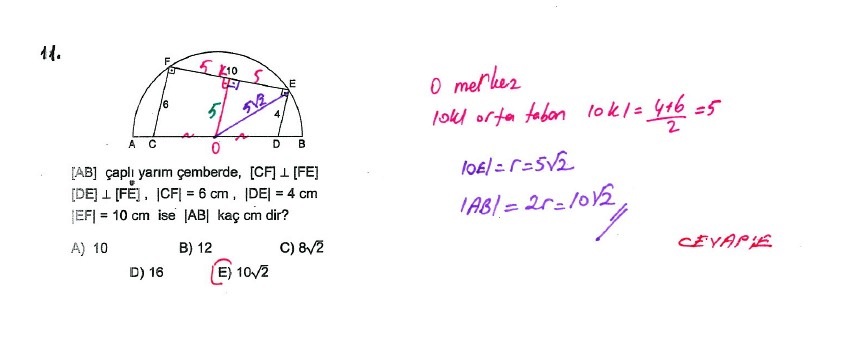 11.
F
5 K 10 5
E
6
5
5√2
4
A C O D B
[AB] çaplı yarım çemberde, [CF] ⊥ [FE]
[DE] ⊥ [FE], |CF| = 6 cm, |DE| = 4 cm
|EF| = 10 cm ise |AB| kaç cm dir?
A) 10 B) 12 C) 8√2
D) 16 E) 10√2
O merkez
|OK| orta taban |OK| = 4+6/2 = 5
|OE| = r = 5√2
|AB| = 2r = 10√2
CEVAP: E